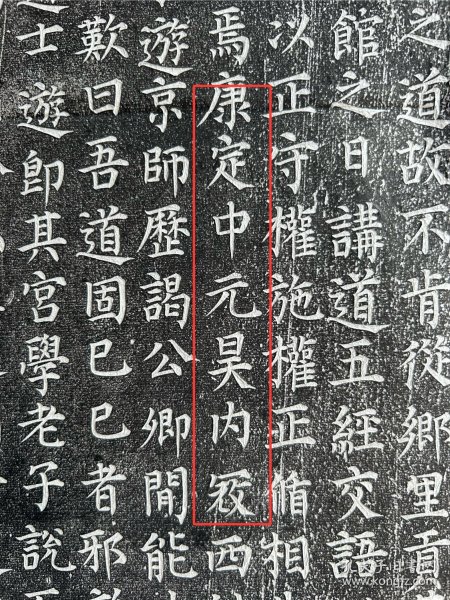 之道故不肯從鄉里貢
館之日講道五經交語
以正守權施權正脩相
焉康定中元昊内寇西
遊京師歷謁公卿間能
歎曰吾道固已已者邪
士遊即其宮學老子説